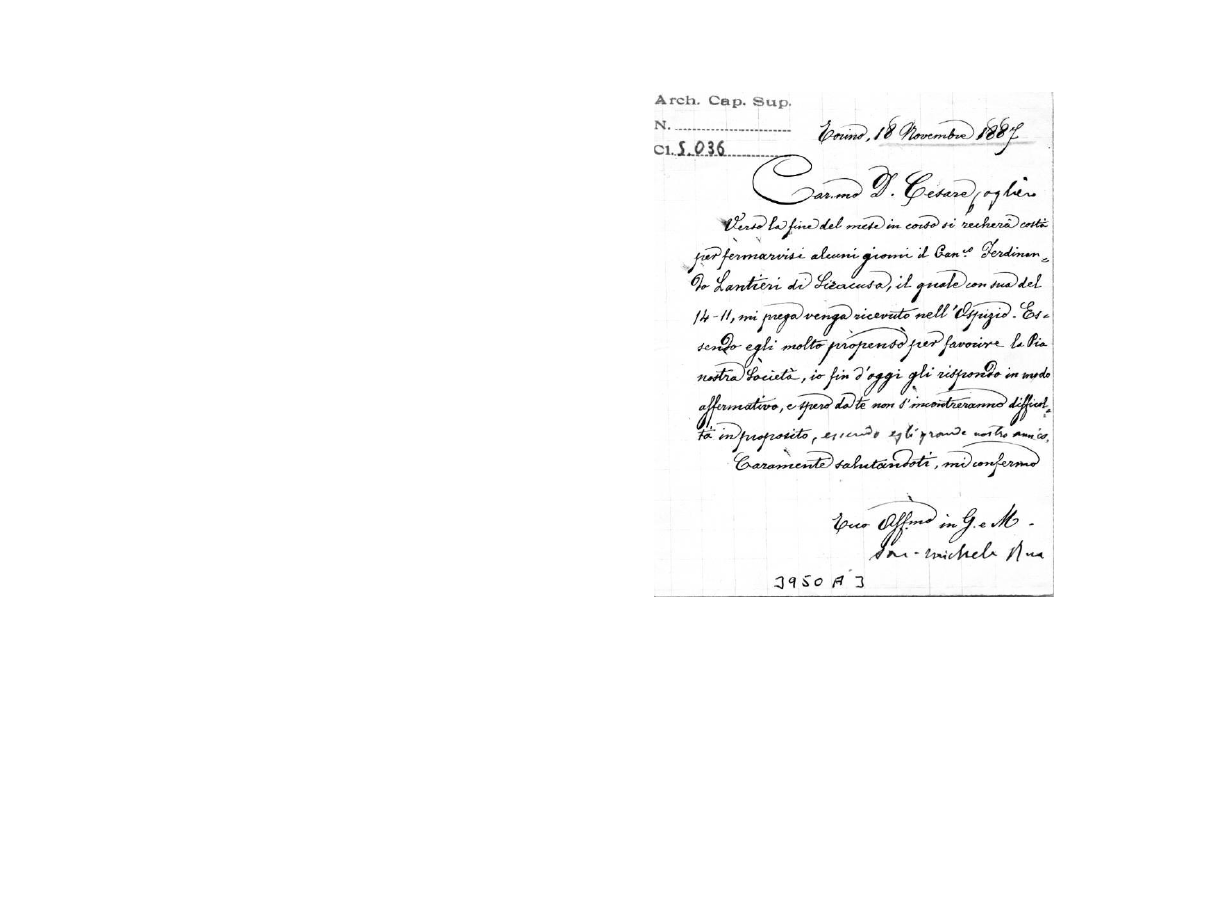 Arch. Cap. Sup.
N.
Cl. S. 036
Torino, 18 Novembre 1887
Car.mo D. Cesare Cagliero
Verso la fine del mese in corso si recherà costà
per fermarvisi alcuni giorni il Can.co Ferdinan-
do Lantieri di Siracusa, il quale con sua del
14-11, mi prega venga ricevuto nell'Ospizio. Es-
sendo egli molto propenso per favorire la Pia
nostra Società, io fin d'oggi gli rispondo in modo
affermativo, e spero da te non s'incontreranno difficol-
tà in proposito, essendo egli grande nostro amico.
Caramente salutandoti, mi confermo
Tuo Aff.mo in G. e M.
Sac. Michele Rua
3950 A 3